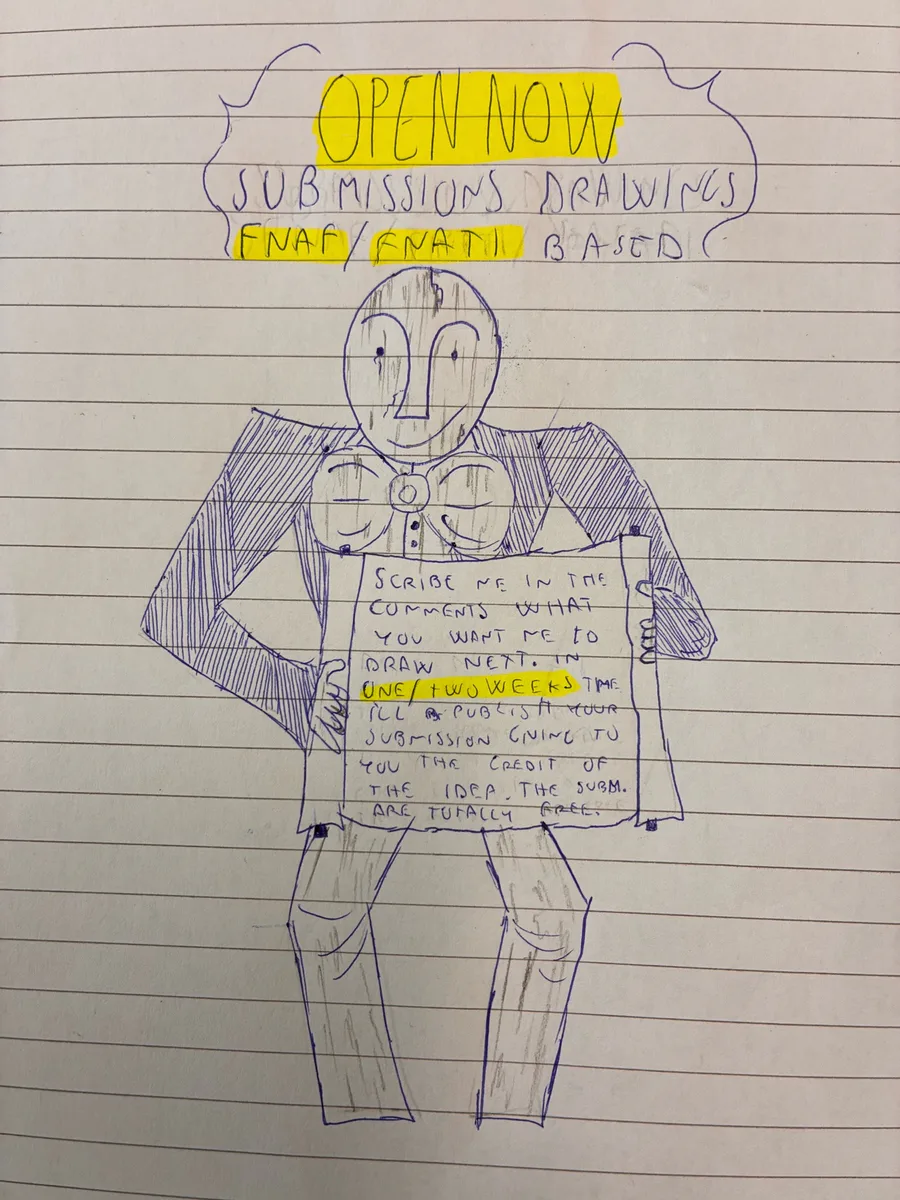 OPEN NOW
SUBMISSIONS DRAWINGS
FNAF/FNATI BASED
SCRIBE ME IN THE
COMMENTS WHAT
YOU WANT ME TO
DRAW NEXT. IN
ONE/TWO WEEKS TIME
I'LL PUBLISH YOUR
SUBMISSION GIVING TO
YOU THE CREDIT OF
THE IDEA. THE SUBM.
ARE TOTALLY FREE.